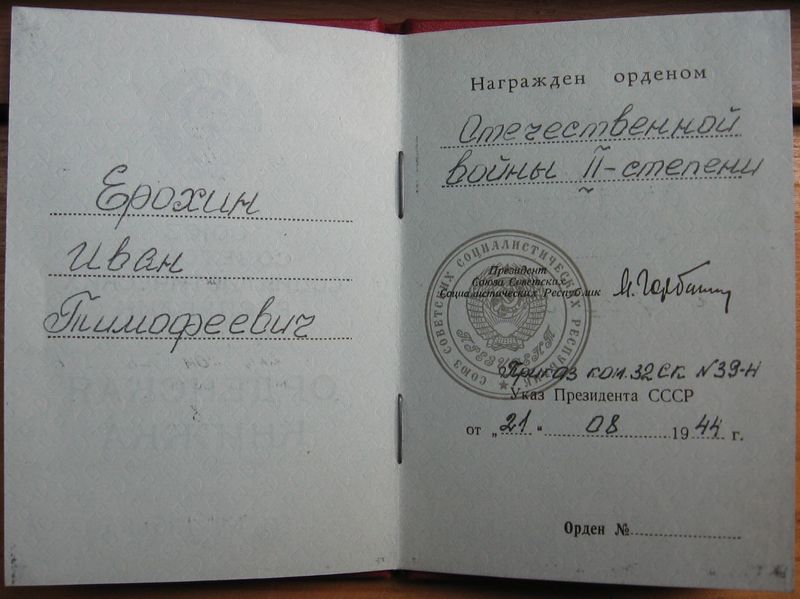 Ерохин
Иван
Тимофеевич
Награжден орденом
Отечественной
войны II-степени
Президент
Союза Советских
Социалистических Республик
М. Горбачев
СОЮЗ СОВЕТСКИХ СОЦИАЛИСТИЧЕСКИХ РЕСПУБЛИК
ПРЕЗИДЕНТ
Приказ ком. 32 СК №39-Н
Указ Президента СССР
от „21“ 08 1944 г.
Орден №